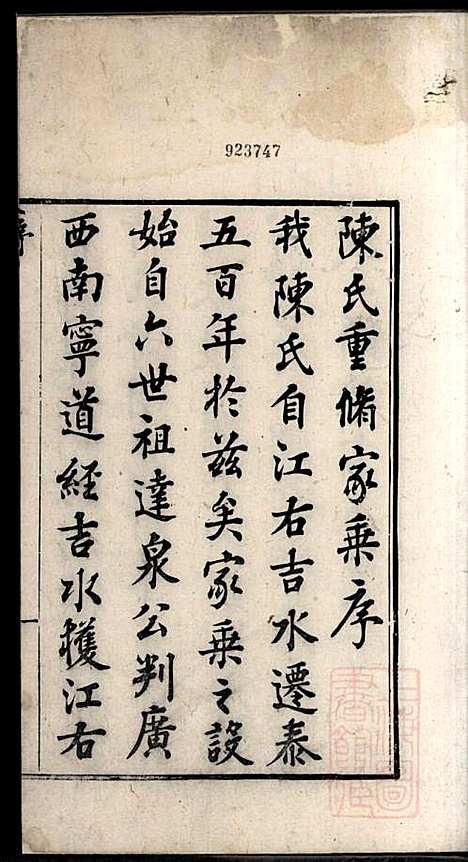 923747
陳氏重脩家乗序
我陳氏自江右吉水遷泰
五百年於茲矣家乗之設
始自六世祖達泉公判廣
西南寧道經吉水獲江右
序